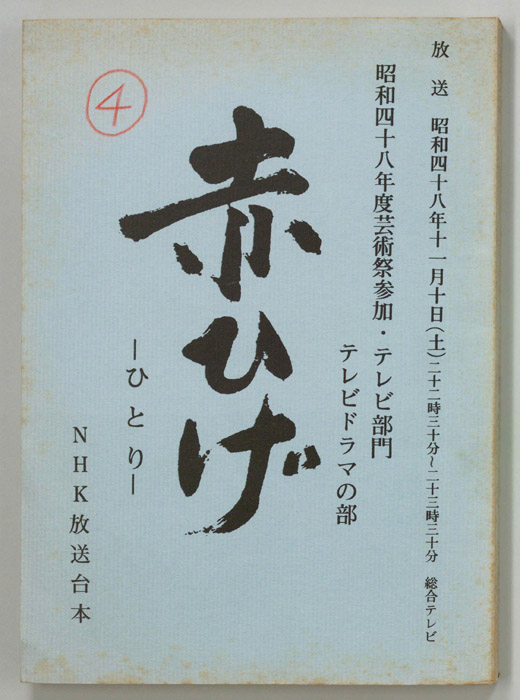 放送 昭和四十八年十一月十日(土)二十二時三十分~二十三時三十分 総合テレビ
昭和四十八年度芸術祭参加・テレビ部門
テレビドラマの部
赤ひげ
―ひとり―
NHK放送台本
4